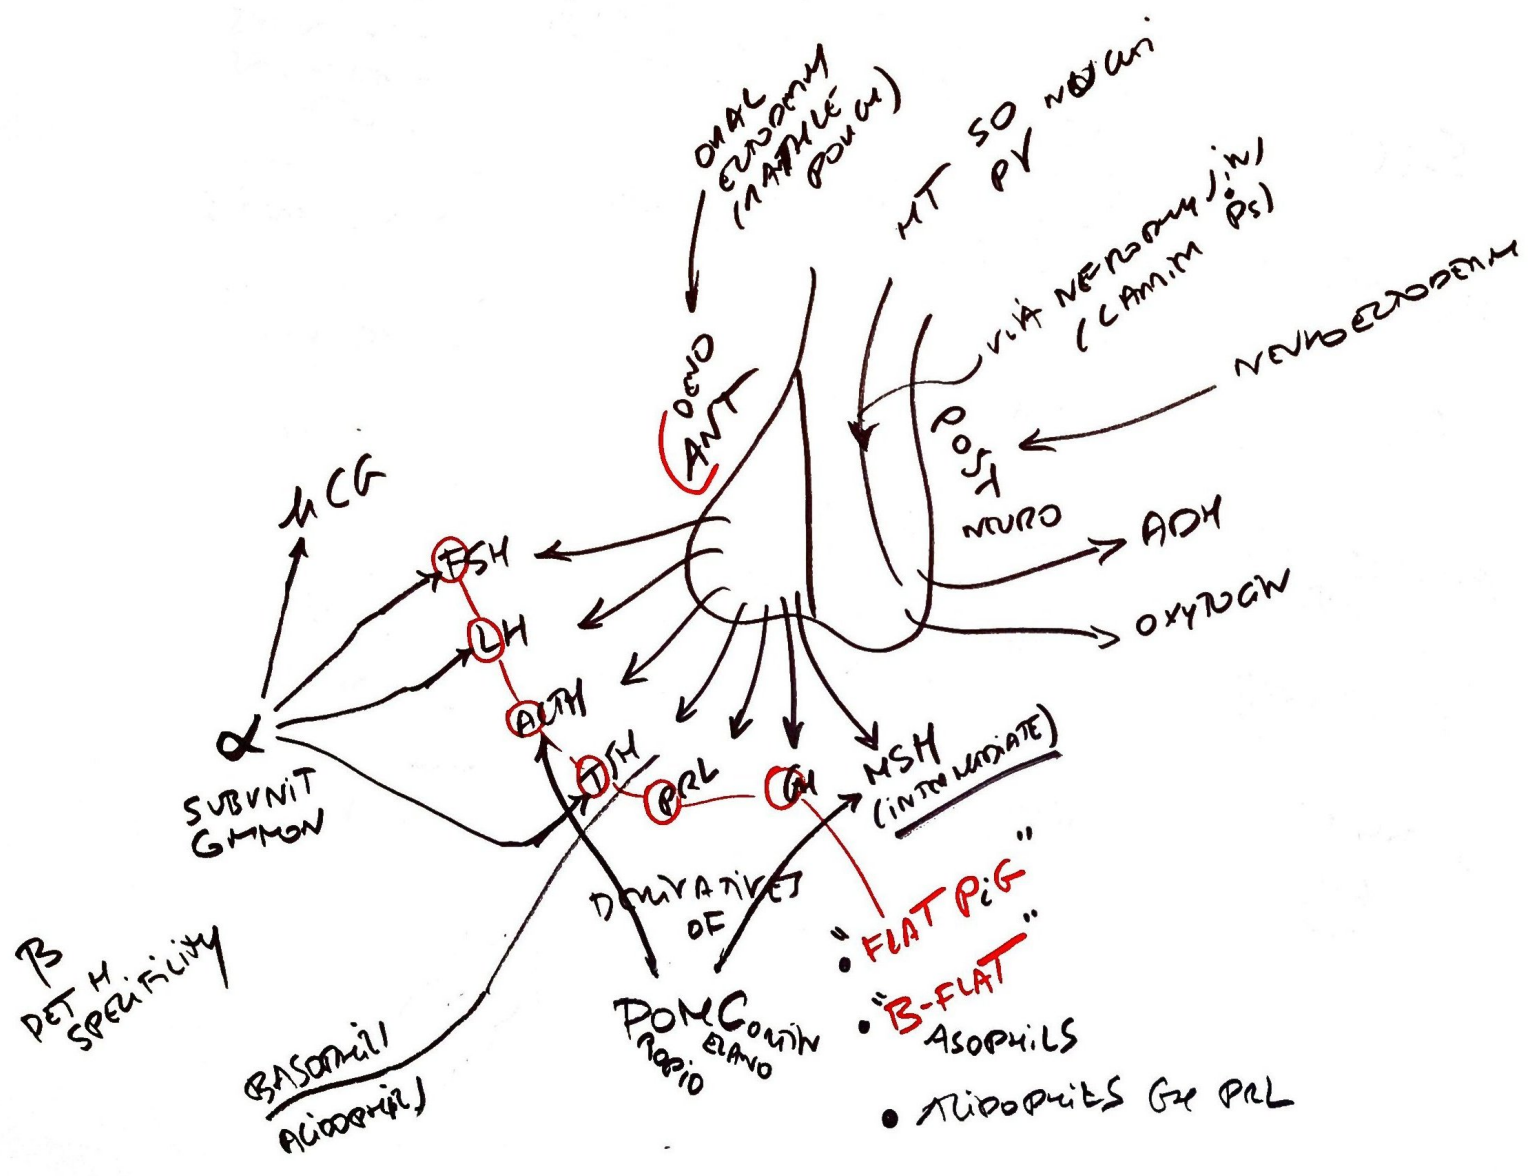 ORAL
ECTODERM
(RATHKE
POUCH)
HT SO NUCLEI
PV
VIA NEUROPHYSINS
(CARRIER PS)
NEUROECTODERM
ADENO
ANT
POST
NEURO
ADH
OXYTOCIN
hCG
FSH
LH
ACTH
TSH
PRL
GH
MSH
(INTERMEDIATE)
α
SUBUNIT
COMMON
β
DET H
SPECIFICITY
DERIVATIVES
OF
POMCORTIN
ROPIO ELANO
• "FLAT PiG"
• "B-FLAT"
ASOPHILS
• ACIDOPHILS GH PRL
BASOPHILS
ACIDOPHILS